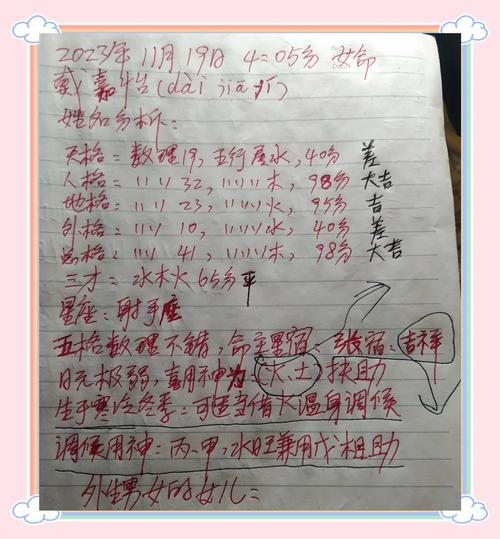 2023年11月19日 4=05分 女命
戴嘉怡(dài jiā yí)
姓名分析:
天格=数理19,五行属水,40分 差
人格= 〃〃 32, 〃〃〃木, 98分 大吉
地格= 〃〃 23, 〃〃〃火, 95分 吉
外格= 〃〃 10, 〃〃〃水, 40分 差
总格= 〃〃 41, 〃〃〃木, 98分 大吉
三才=水木火65分平
星座:射手座
五格数理不错,命主星宿:张宿:吉祥
日元极弱,喜用神为(火、土)扶助
生于寒冷冬季:可适当借火温身调候
调候用神:丙、甲,水旺兼用戊相助
外生男女的女儿=